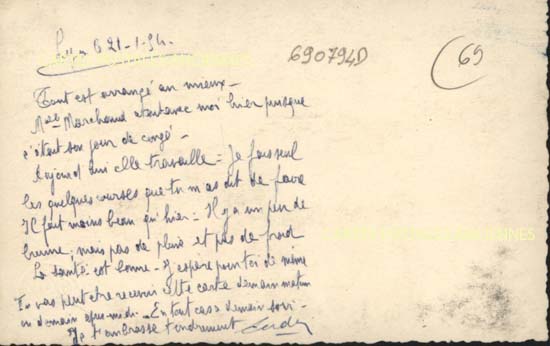 le 21-1-54-
690794D
69
Tout est arrangé au mieux-
Melle Marchand avec moi hier puisque
c'était son jour de congé-
Aujourd'hui elle travaille = Je fais seul
les quelques courses que tu m'as dit de faire
Il fait moins beau qu'hier = Il y a un peu de
brume, mais pas de pluie et pas de froid
La santé est bonne - J'espère pour toi de même
Tu vas peut être recevoir cette carte demain matin
ou demain après-midi - En tout cas à demain soir-
Je t'embrasse tendrement